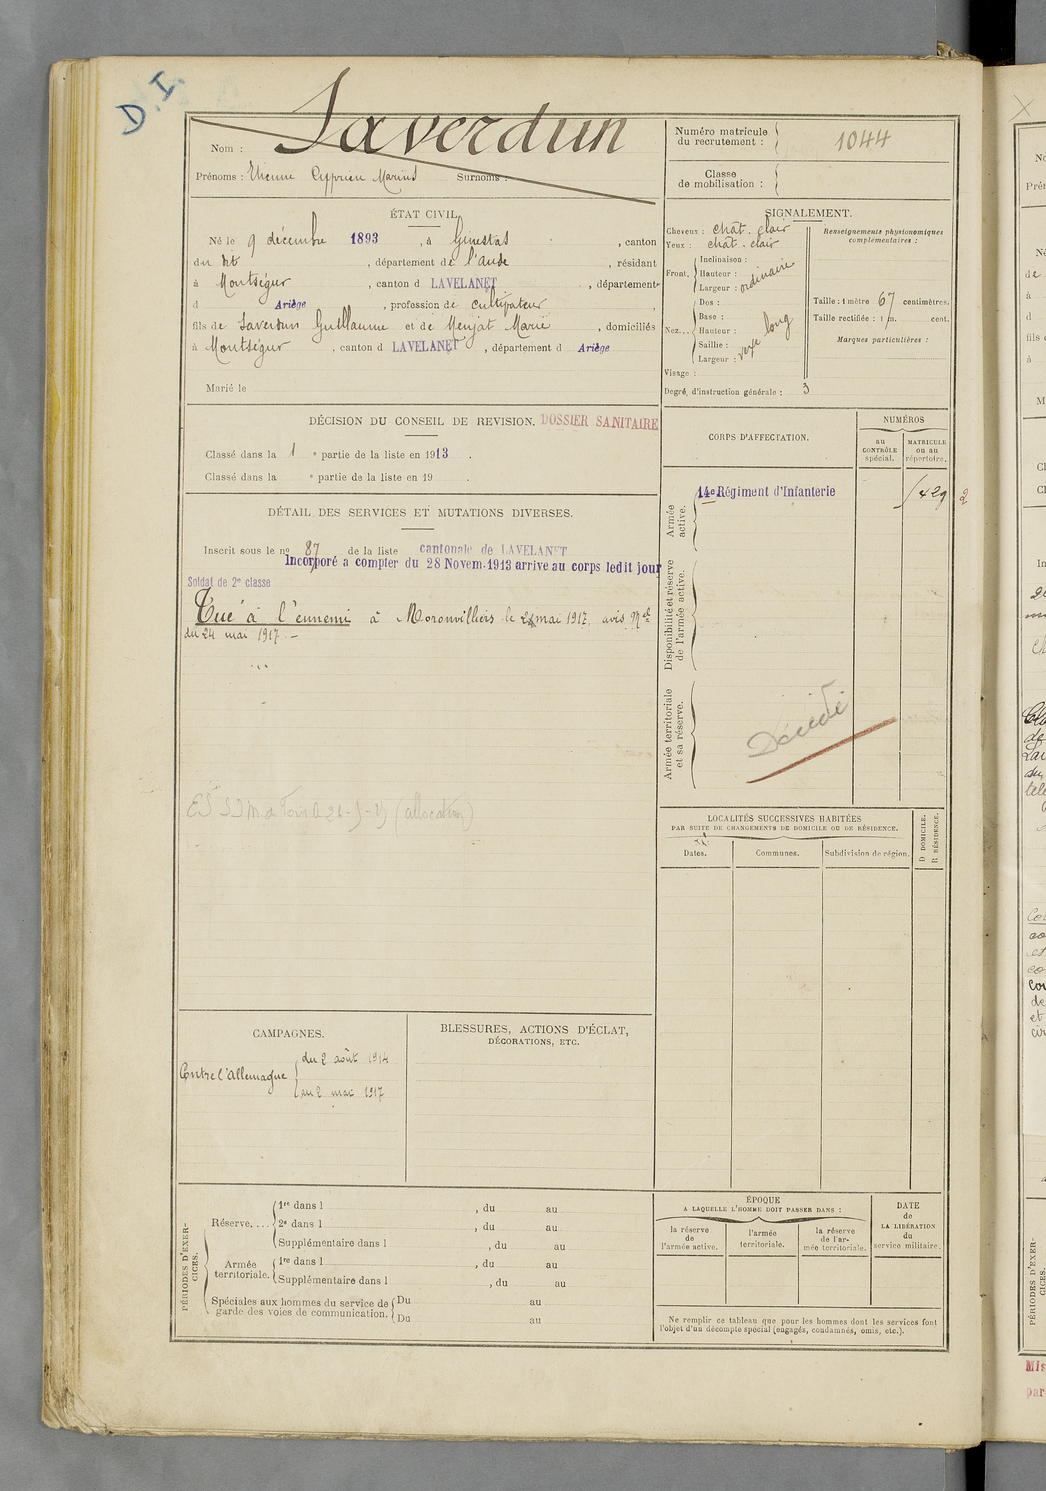 D.I.
Nom : Laverdun
Prénoms : Etienne Cyprien Marius Surnoms :
Numéro matricule
du recrutement : 1044
Classe
de mobilisation :
ÉTAT CIVIL.
Né le 9 décembre 1893, à Ginestas, canton
du dit, département de l'Aude, résidant
à Montségur, canton d LAVELANET, département
d Ariège, profession de cultivateur,
fils de Laverdun Guillaume et de Menjat Marie, domiciliés
à Montségur, canton d LAVELANET, département d Ariège
Marié le
SIGNALEMENT.
Cheveux : chât. clair
Yeux : chât. clair
Front. Inclinaison :
Hauteur : ordinaire
Largeur :
Nez... Dos :
Base :
Hauteur : long
Saillie : vexe
Largeur :
Visage :
Degré d'instruction générale : 3
Renseignements physionomiques
complémentaires :
Taille : 1 mètre 67 centimètres.
Taille rectifiée : 1 m. cent.
Marques particulières :
DÉCISION DU CONSEIL DE REVISION. DOSSIER SANITAIRE
Classé dans la 1 e partie de la liste en 1913.
Classé dans la e partie de la liste en 19 .
DÉTAIL DES SERVICES ET MUTATIONS DIVERSES.
Inscrit sous le no 87 de la liste cantonale de LAVELANET
Incorporé a compter du 28 Novem. 1913 arrive au corps ledit jour
Soldat de 2e classe
Tué à l'ennemi à Moronvilliers le 2 mai 1917, avis Mel
du 24 mai 1917. —
(allocation)
CORPS D'AFFECTATION.
NUMÉROS
au
CONTRÔLE
spécial.
MATRICULE
ou au
répertoire.
Armée
active.
14e Régiment d'Infanterie
Disponibilité et réserve
de l'armée active.
Armée territoriale
et sa réserve.
Décédé
LOCALITÉS SUCCESSIVES HABITÉES
PAR SUITE DE CHANGEMENTS DE DOMICILE OU DE RÉSIDENCE.
Dates.
Communes.
Subdivision de région.
D DOMICILE.
R RÉSIDENCE.
CAMPAGNES.
Contre l'Allemagne du 2 août 1914
au 2 mai 1917
BLESSURES, ACTIONS D'ÉCLAT,
DÉCORATIONS, ETC.
PÉRIODES D'EXER-
CICES.
Réserve.... 1re dans l , du au
2e dans l , du au
Supplémentaire dans l , du au
Armée
territoriale. 1re dans l , du au
Supplémentaire dans l , du au
Spéciales aux hommes du service de
garde des voies de communication. Du au
Du au
ÉPOQUE
A LAQUELLE L'HOMME DOIT PASSER DANS :
la réserve
de
l'armée active.
l'armée
territoriale.
la réserve
de l'ar-
mée territoriale.
DATE
de
LA LIBÉRATION
du
service militaire.
Ne remplir ce tableau que pour les hommes dont les services font
l'objet d'un décompte spécial (engagés, condamnés, omis, etc.).